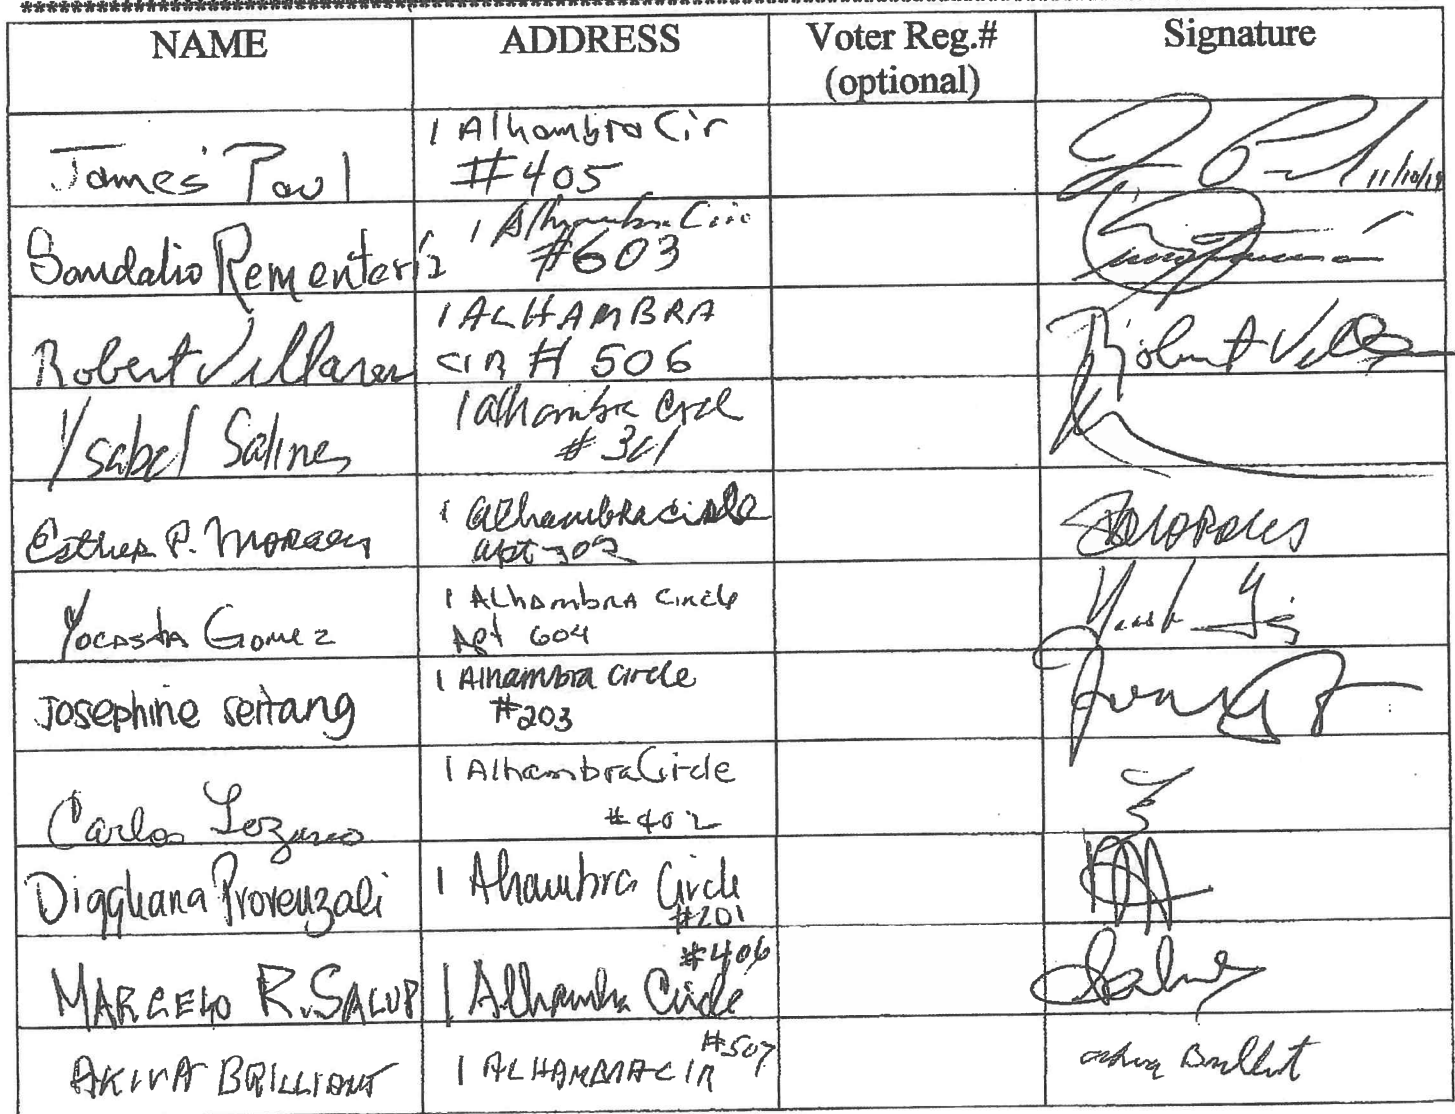 NAME ADDRESS Voter Reg.# Signature
(optional)
James Paul 1 Alhambra Cir
#405 11/10/19
Sandalio Rementeria 1 Alhambra Circ
#603
Robert Villarer 1 ALHAMBRA
CIR # 506 Robert
Ysabel Salines 1 alhambra Crcl
# 301
Esther P. Morales 1 Alhambra circle
apt 302 Morales
Yocasta Gomez 1 Alhambra Circle
Apt 604
Josephine seitang 1 Alhambra Circle
#203
Carlos Lozano 1 Alhambra Circle
#402
Diqqhana Provenzali 1 Alhambra Circle
#201
MARCELO R. SALUP #406
1 Alhambra Circle
AKIVA BRILLIANT 1 ALHAMBRA CIR #507 Akiva Brilliant